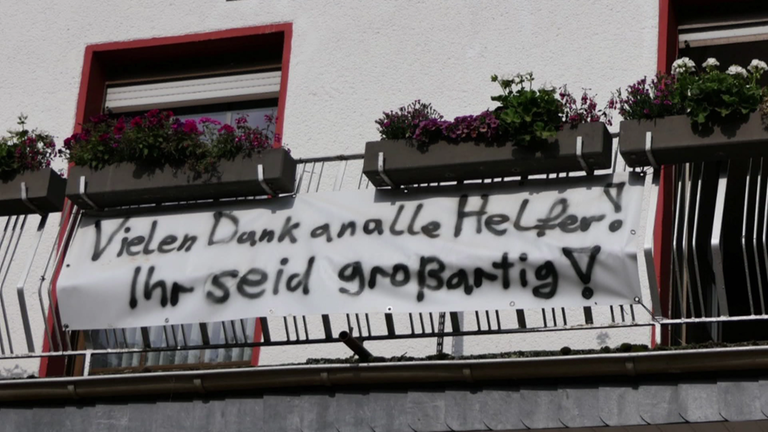 Vielen Dank an alle Helfer!
Ihr seid großartig!